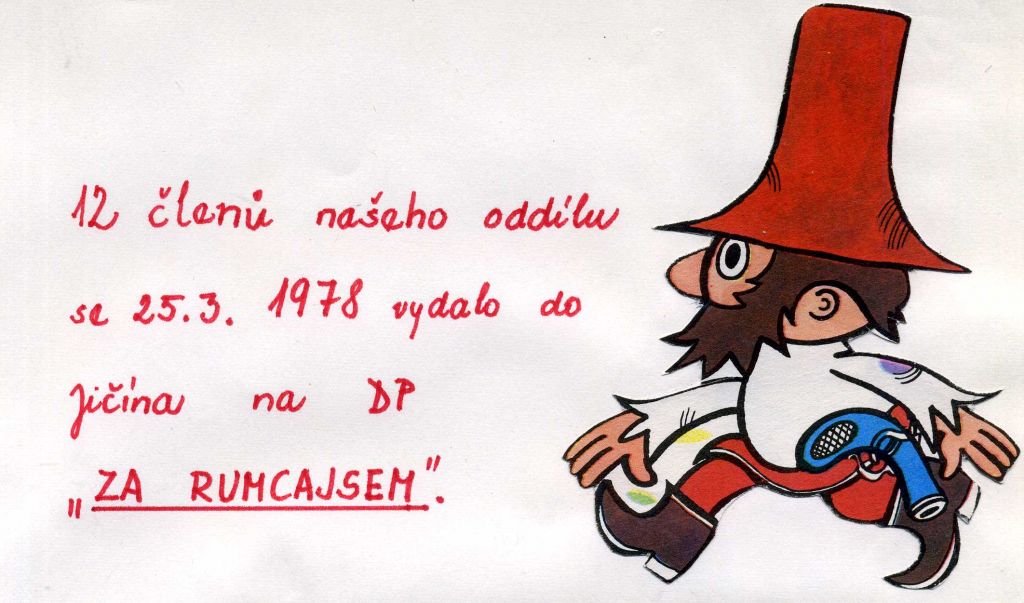 12 členů našeho oddílu
se 25.3. 1978 vydalo do
Jičína na DP
„ZA RUMCAJSEM".